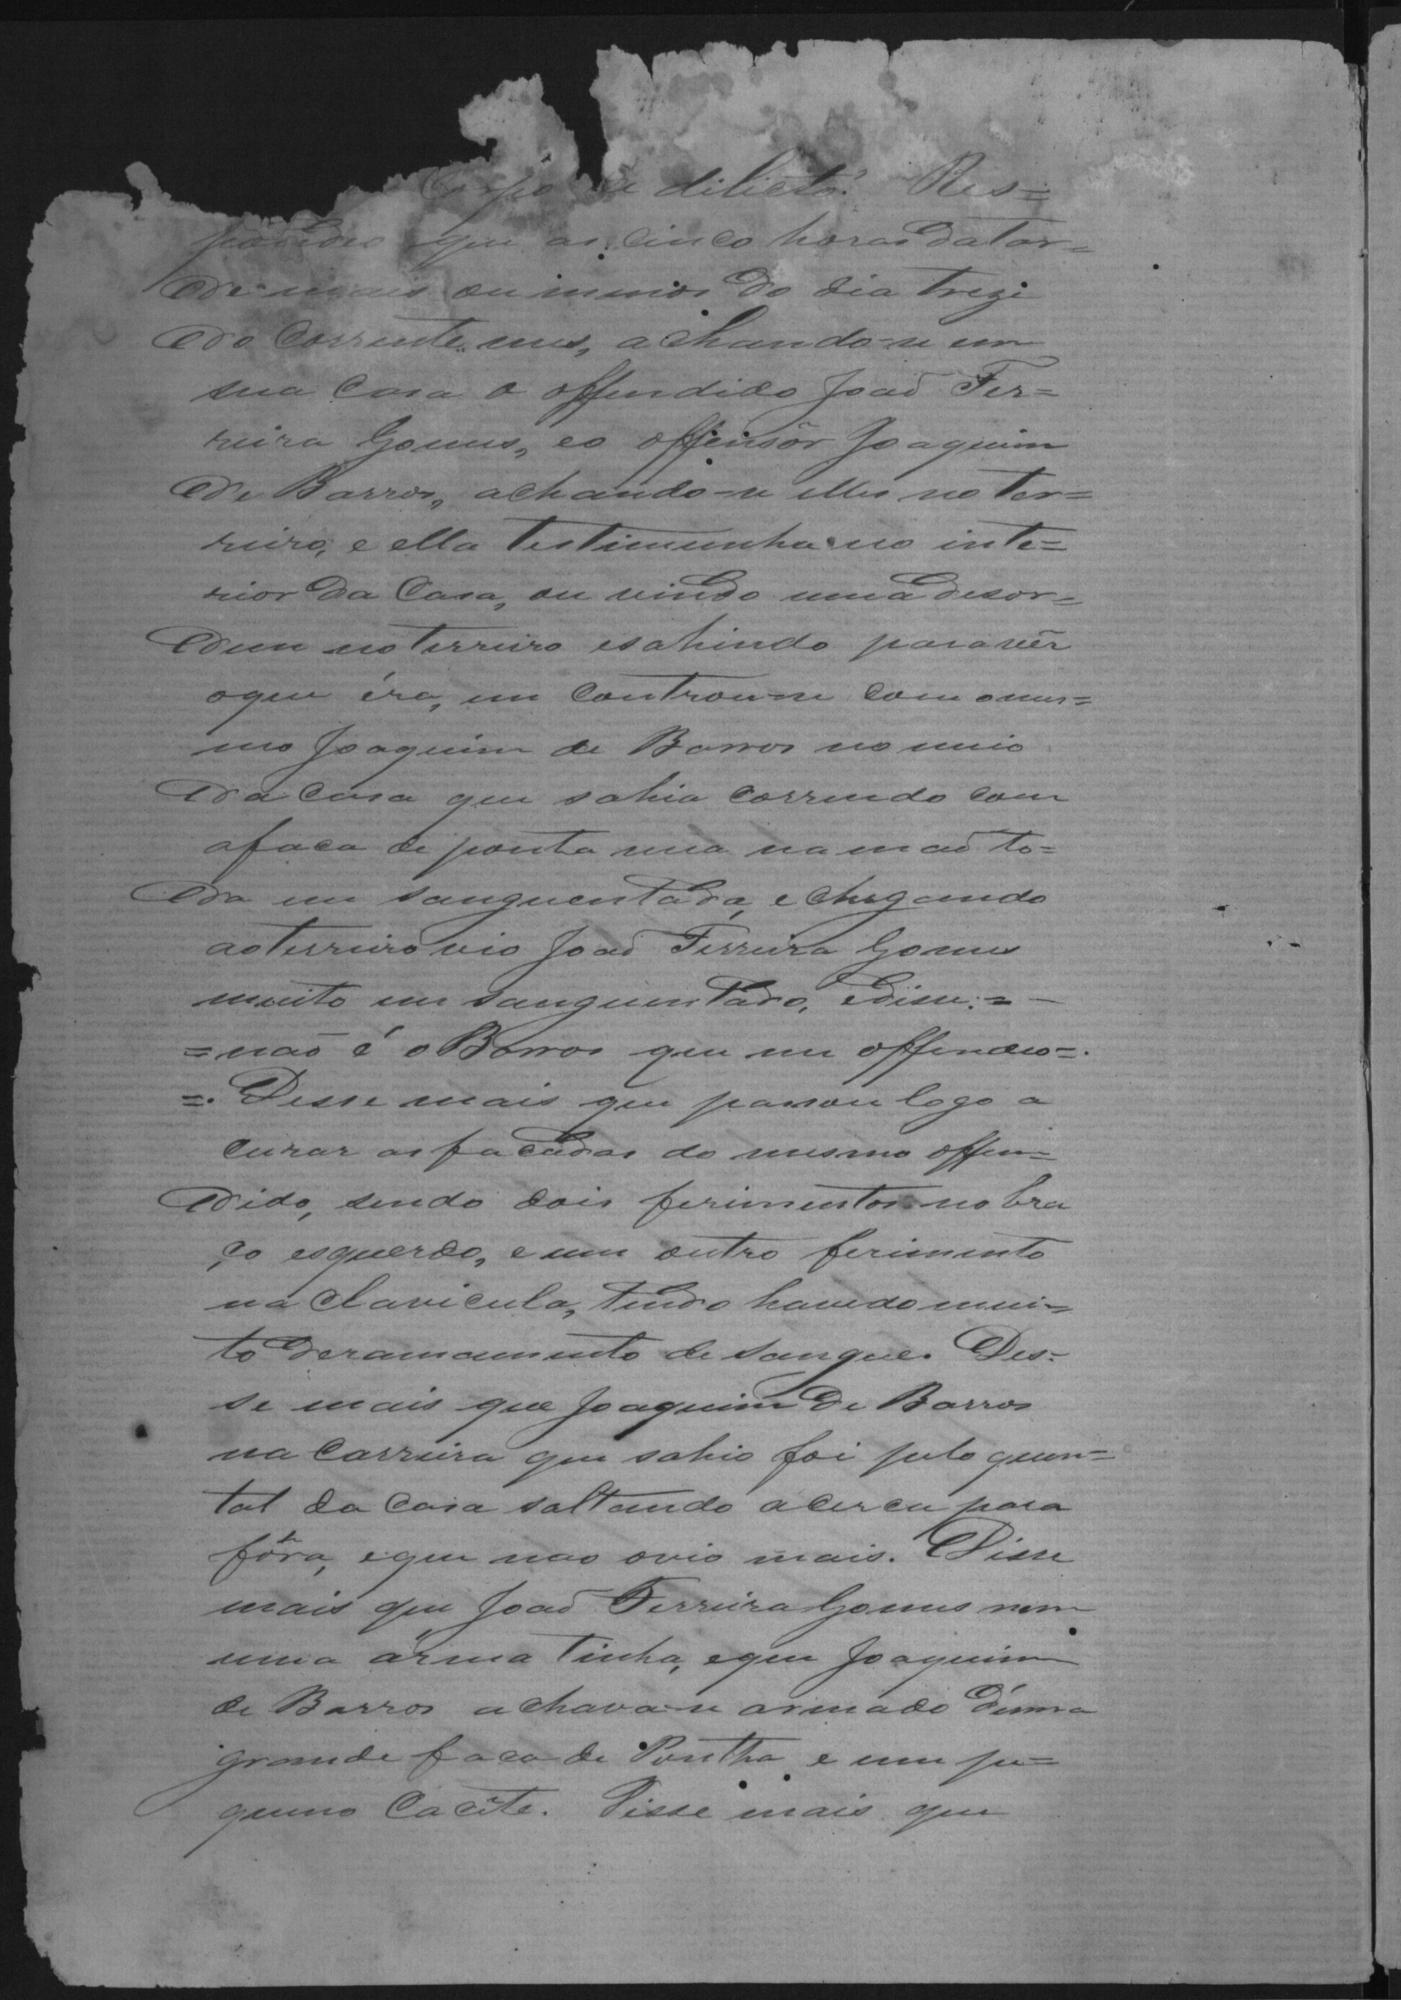 Corpo de delicto? Res=
pondeo que as cinco horas da tar=
de mais ou menos do dia treze
do Corrente mes, achando-se em
sua Casa o offendido Joaõ Fer=
reira Gomes, eo offensôr Joaquim
de Barros, achando-se elles no ter=
reiro, e ella testimunha no inte=
rior da Casa, ouvindo uma desor=
dem no terreiro esahindo para vêr
oque éra, en controu-se com omes=
mo Joaquim de Barros no meio
da casa que sahia correndo com
afaca de ponta nua na maõ to=
da en sanguentada, e chegando
ao terreiro vio Joaõ Ferreira Gomes
muito en sanguentado, edisse: =
= naõ é o Barros que me offendeo=.
=. Desse mais que passou logo a
curar as facadas do mesmo offen=
dido, sendo dois ferimentos no bra
ço esquerdo, e um outro ferimento
na Clavicula, tendo havedo mui=
to deramamento de sangue. Des=
se mais que Joaquim de Barros
na Carreira que sahio foi pelo quin=
tal da Casa saltando a cerca para
fôra, eque nao ovio mais. Disse
mais que Joaõ Ferreira Gomes nem
uma árma tinha, eque Joaquim
de Barros achava-se armado d'uma
grande faca de Pontha e um pe=
queno Cacête. Disse mais que